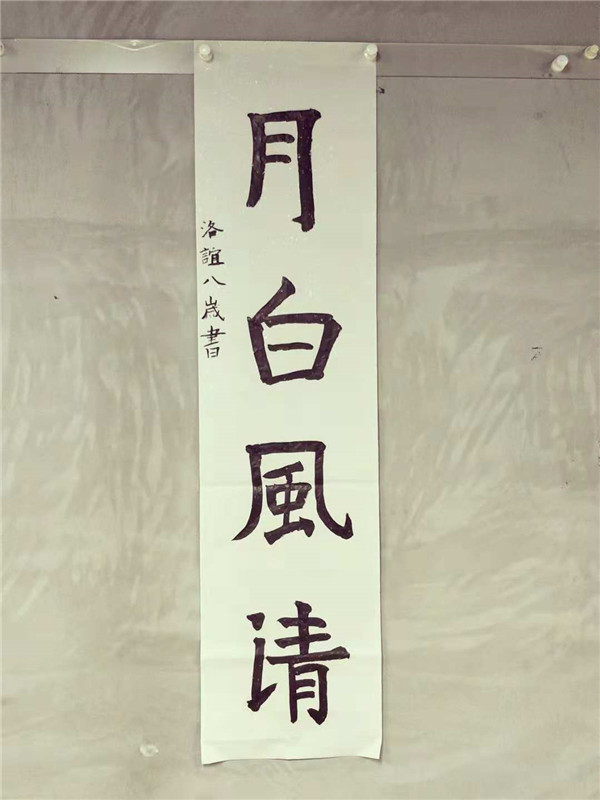 月白風清
洛誼八歲書